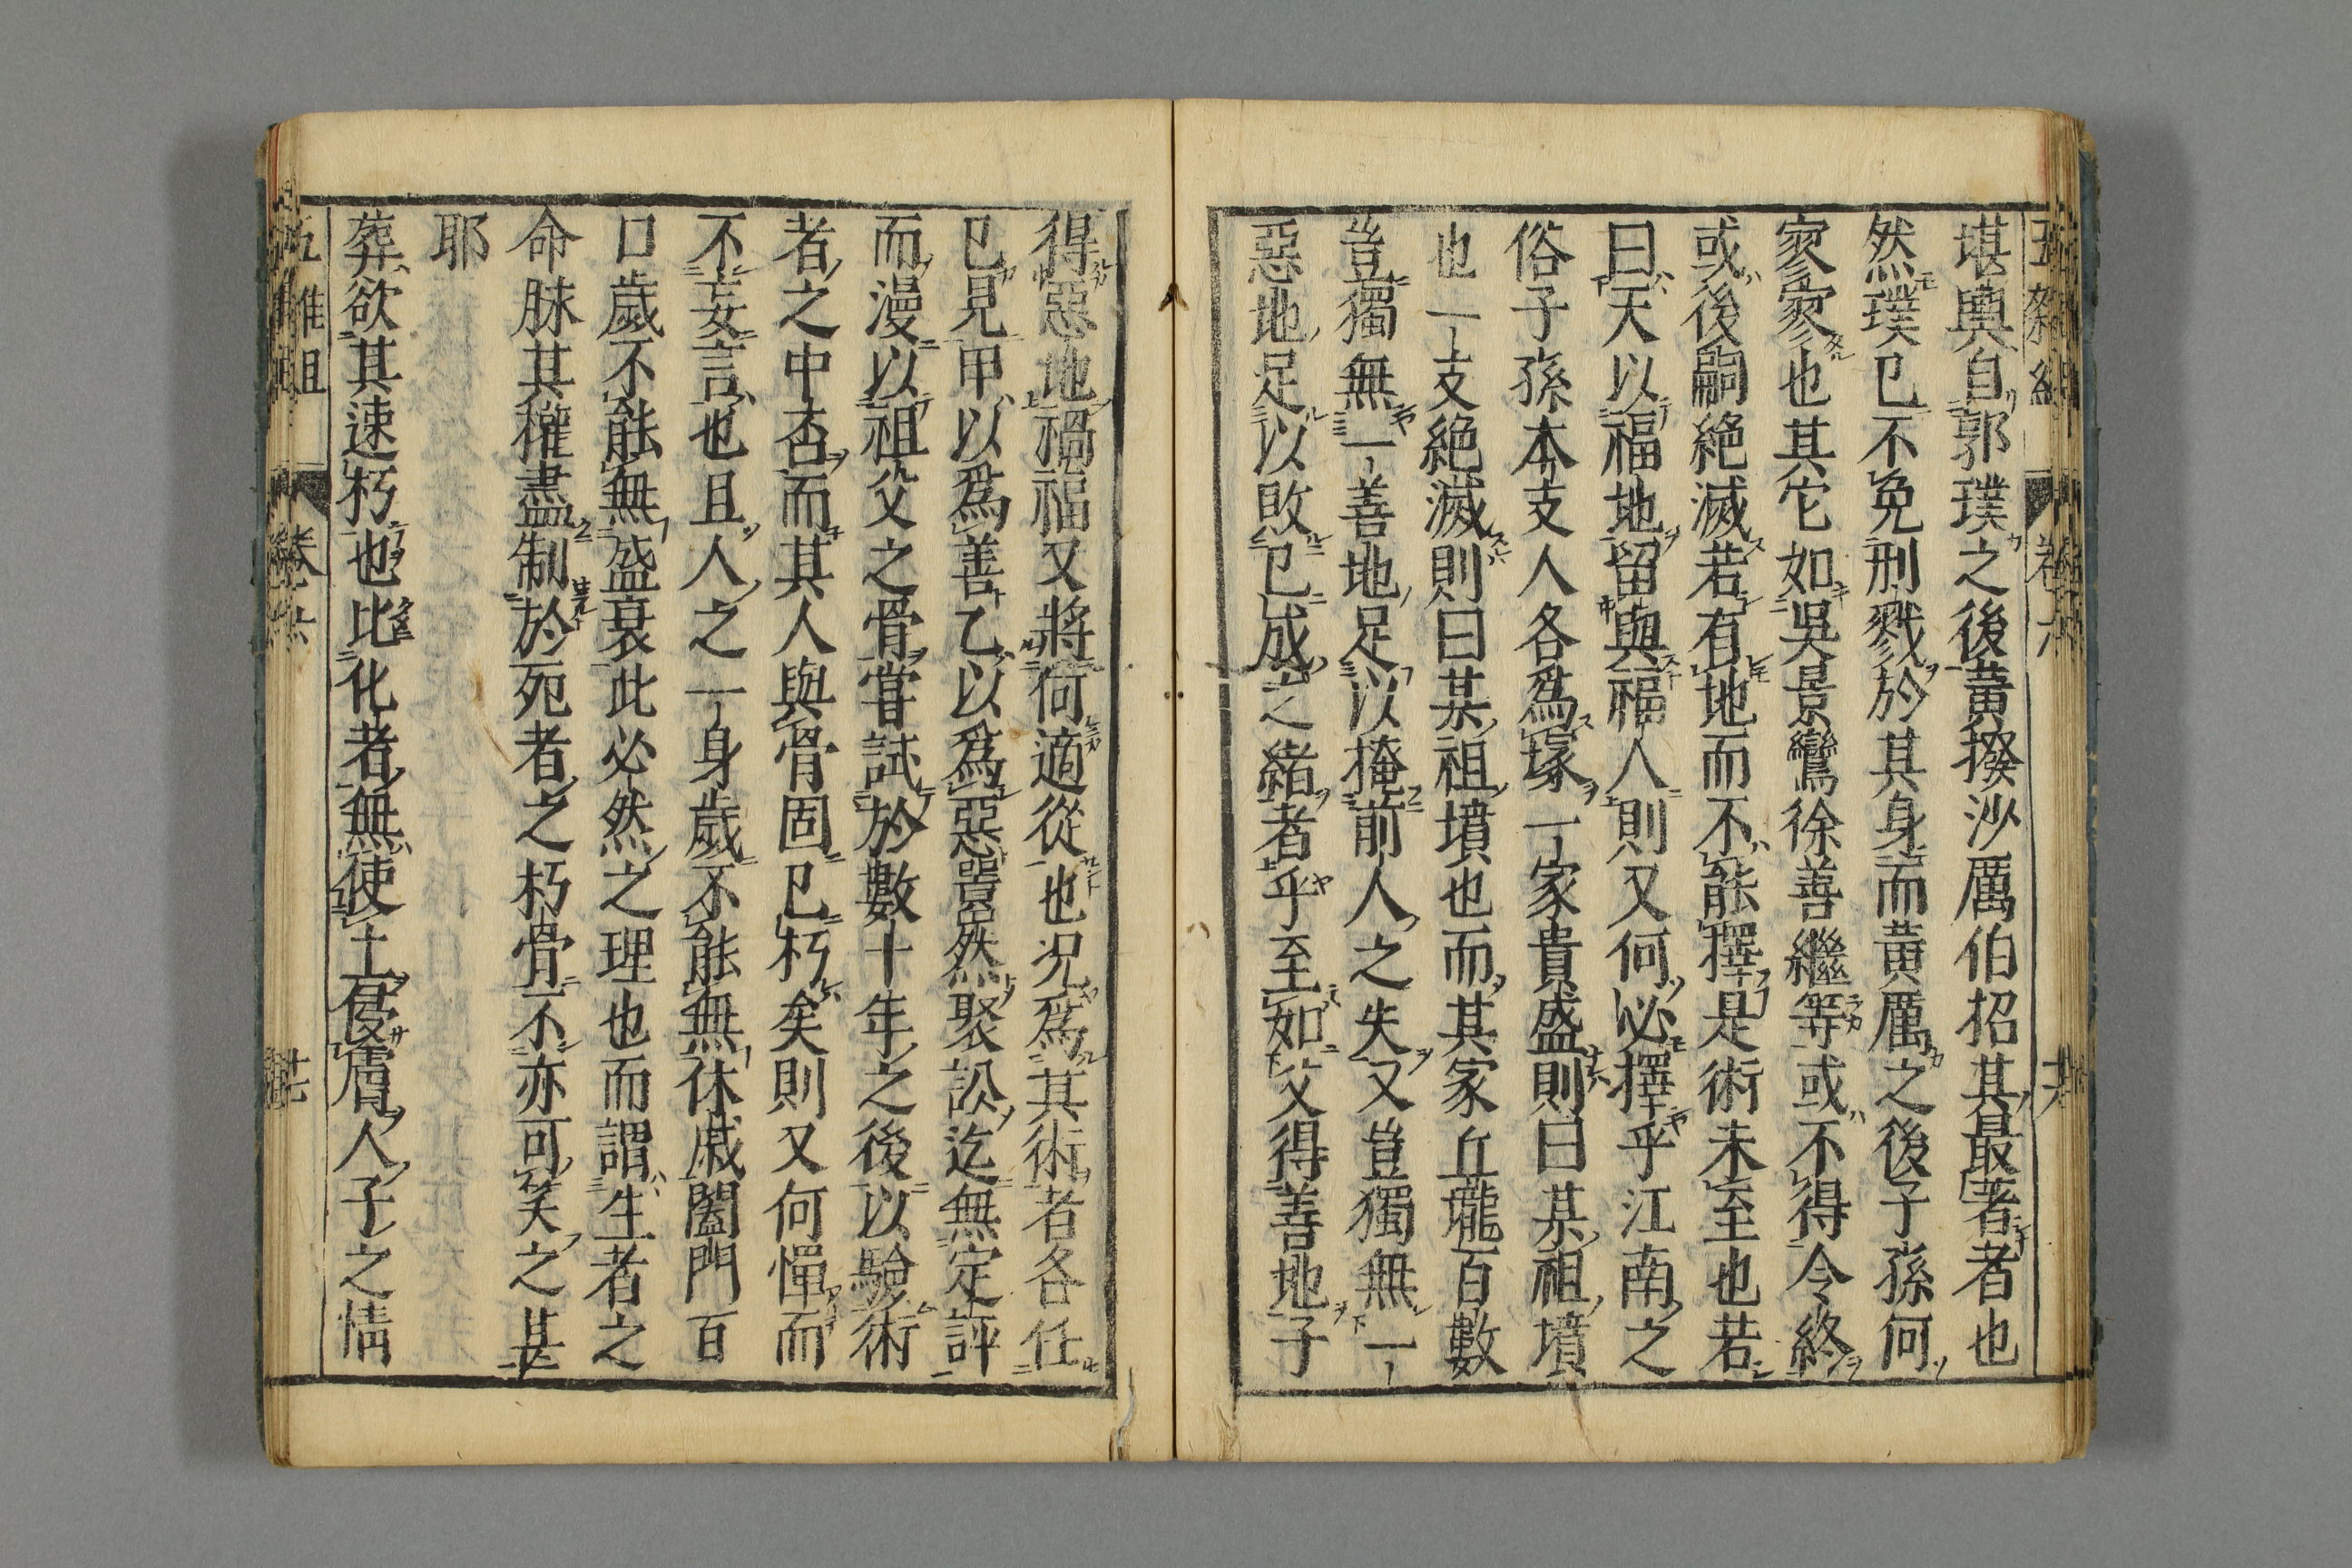 堪輿自郭璞之後黃撥沙厲伯招其最著者也
然璞已不免刑戮於其身而黃厲之後子孫何
寥寥也其它如吳景鸞徐善繼等或不得令終
或後嗣絕滅若有地而不能擇是術未至也若
曰天以福地留與福人則又何必擇乎江南之
俗子孫本支人各爲塚一家貴盛則曰某祖墳
也一支絕滅則曰某祖墳也而其家丘壠百數
豈獨無一善地足以掩前人之失又豈獨無一
惡地足以敗已成之緒者乎至如父得善地子
得惡地禍福又將何適從也况爲其術者各任
已見甲以爲善乙以爲惡嚚然聚訟迄無定評
而漫以祖父之骨嘗試於數十年之後以驗術
者之中否而其人與骨固已朽矣則又何憚而
不妄言也且人之一身歲不能無休戚闔門百
口歲不能無盛衰此必然之理也而謂生者之
命脉其權盡制於死者之朽骨不亦可笑之甚
耶
葬欲其速朽也比化者無使土侵膚人子之情
五雜組 卷六